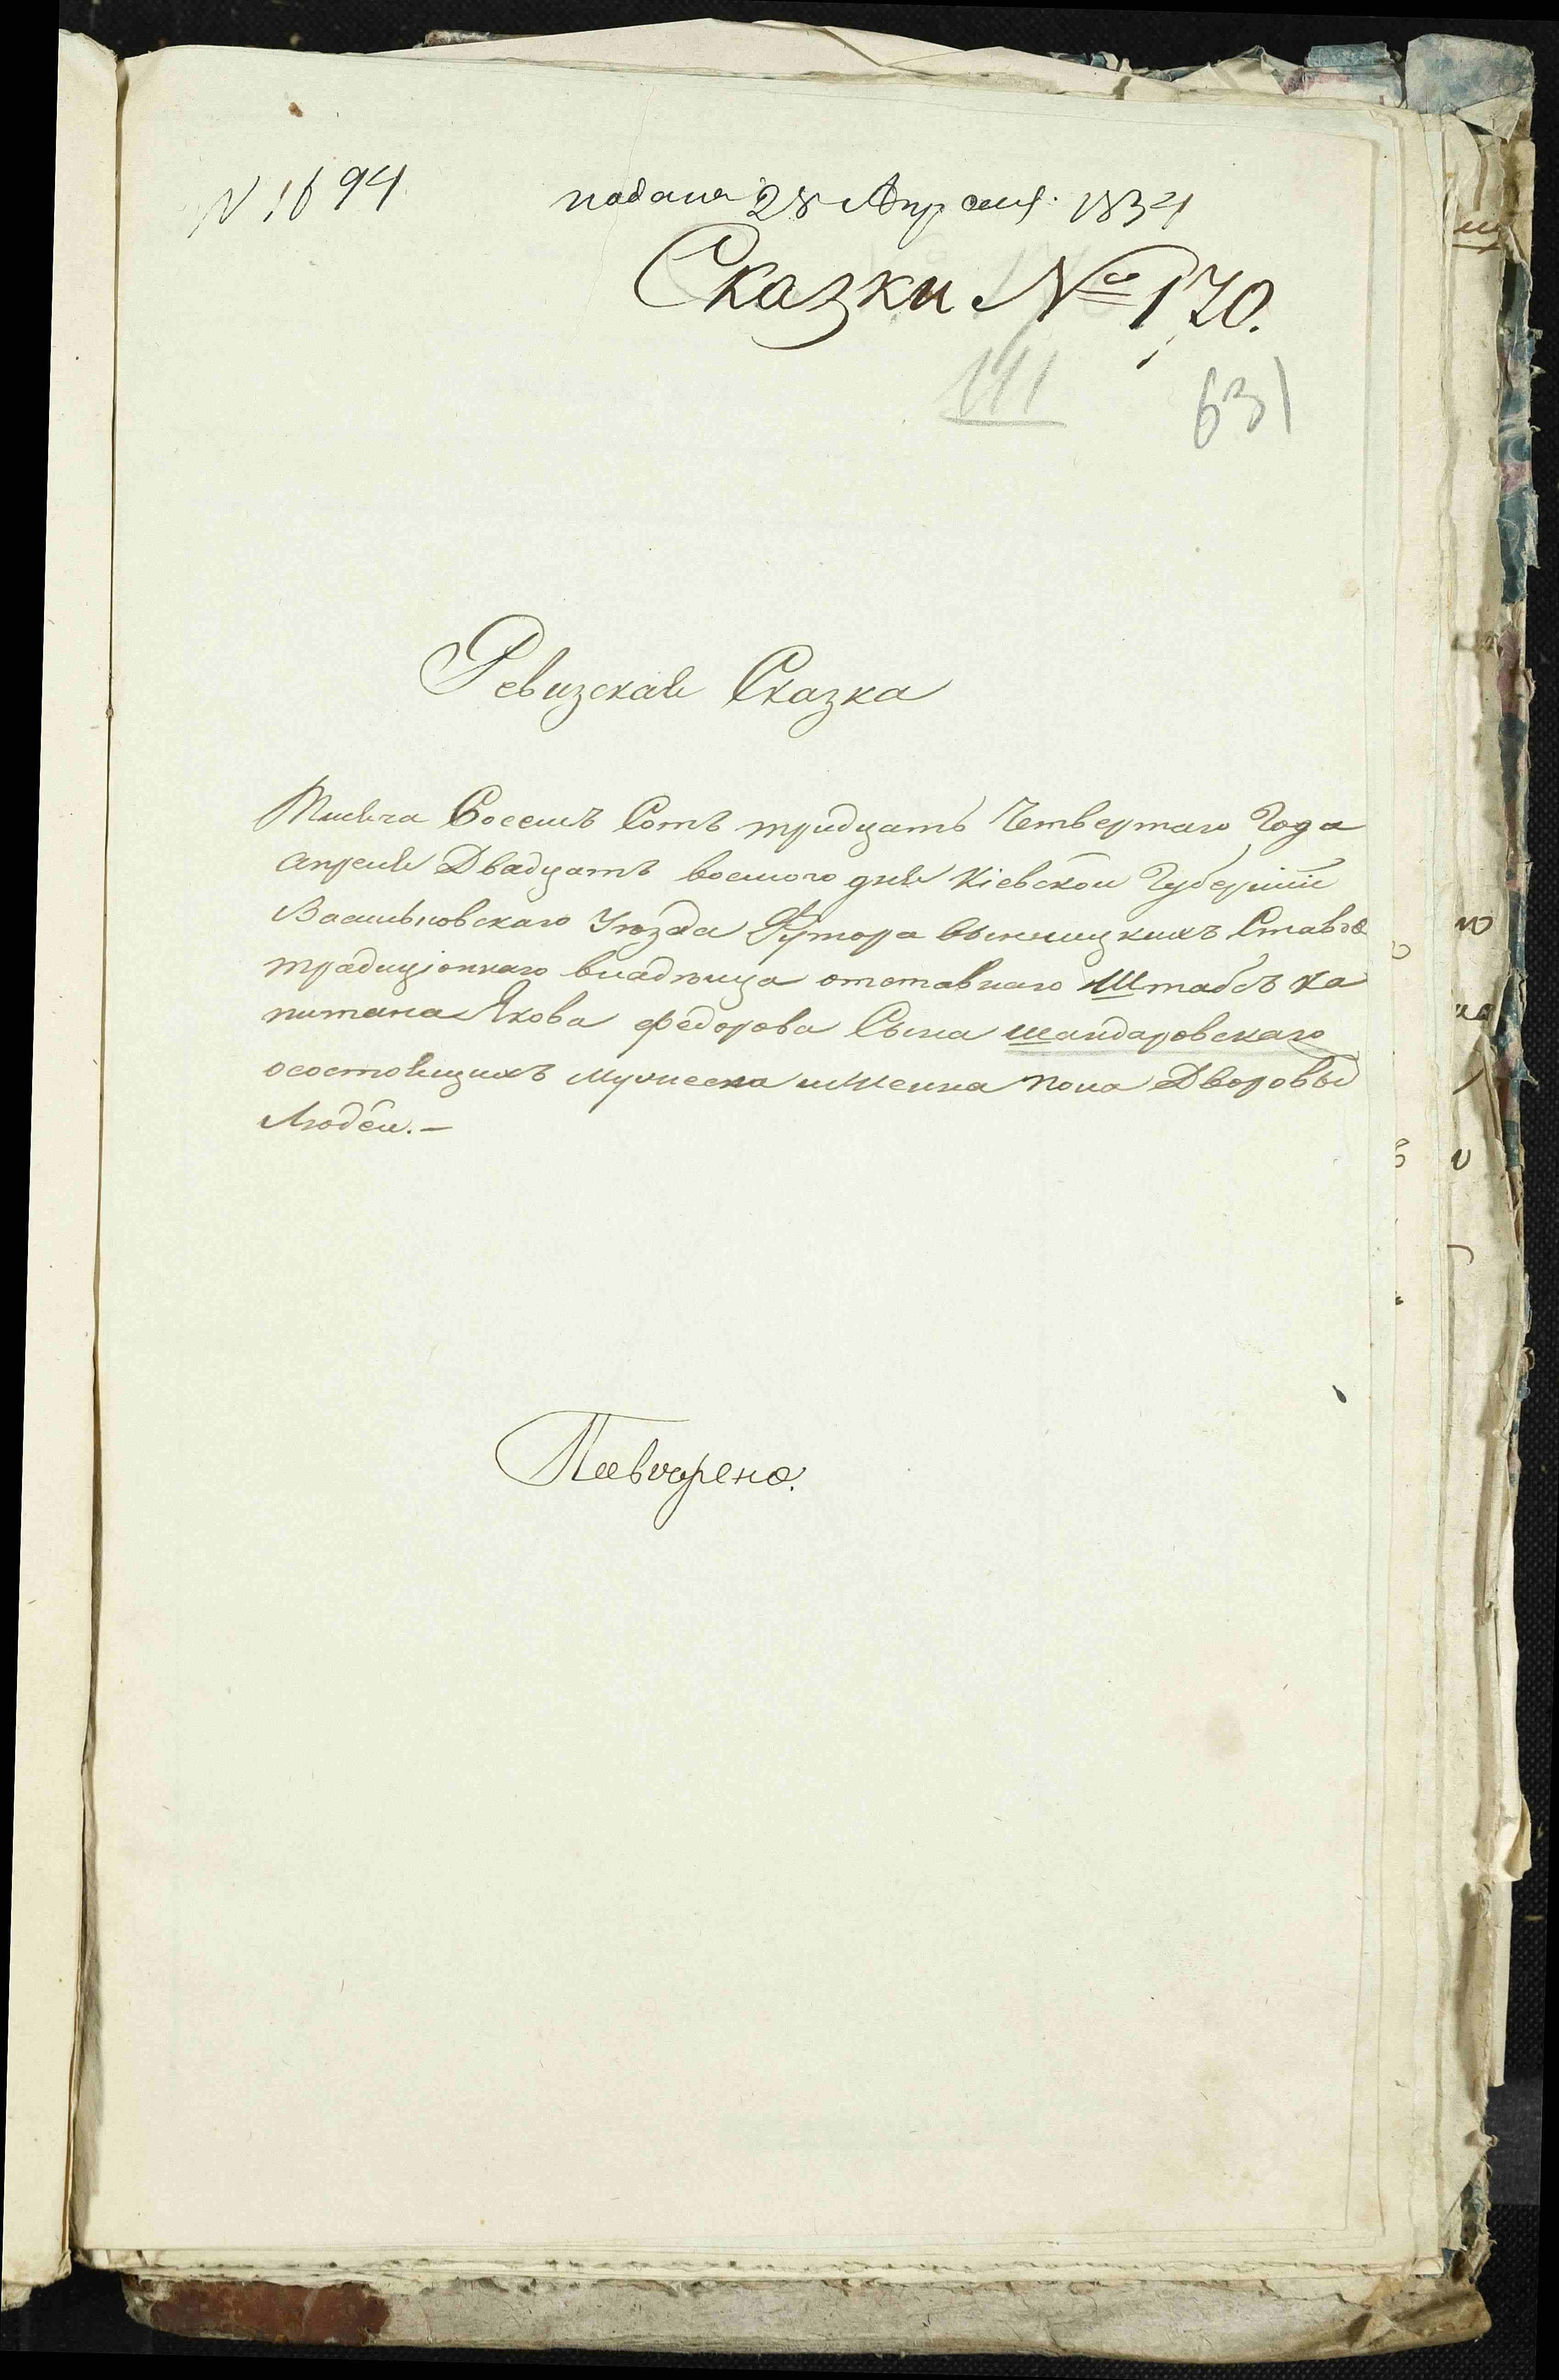 N 1694
подана 28 Апреля 1834
Сказки № 170.
111
631
Ревизская Сказка
Тысяча Восемь Сотъ тридцать Четвертаго Года
апреля Двадцать восмого дня Кіевской Губерніи
Васильковскаго Уѣзда Футора винницкихъ Ставов
традиціоннаго владѣльца отставнаго Штабсъ Ка
питана Якова федорова Сына шандаровскаго
осостоящихъ мужеска иженска пола Дворовых
Людей.-